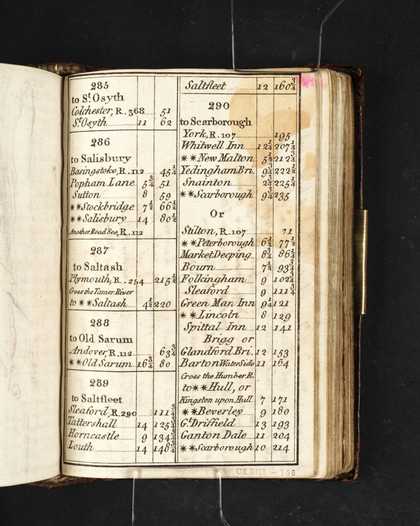 285
to St. Osyth
Colchester, R. 368 51
St. Osyth 11 62
286
to Salisbury
Basingstoke, R. 112 45¼
Popham Lane 5¾ 51
Sutton 8 59
**Stockbridge 7¼ 66¼
**Salisbury 14 80¼
Another Road See, R. 112
287
to Saltash
Plymouth, R. 254 215½
Cross the Tamer River
to **Saltash 4½ 220
288
to Old Sarum
Andover, R. 112 63¾
**Old Sarum 16¼ 80
289
to Saltfleet
Sleaford, R. 290 111
Tattershall 14 125
Horncastle 9 134
Louth 14 148
Saltfleet 12 160¾
290
to Scarborough
York, R. 107 195
Whitwell Inn 12 207
**New Malton 5 212
Yedingham Bri. 9 222
Snainton 2 225
**Scarborough 9 235
Or
Stilton, R. 107 71
**Peterborough 6 77
Market Deeping 8 86
Bourn 7 93
Folkingham 9 102
Sleaford 9 111
Green Man Inn 9 121
**Lincoln 8 129
Spittal Inn 12 141
Brigg or
Glandford Bri. 12 153
Barton Water Side 11 164
Cross the Humber R.
to **Hull, or
Kingston upon Hull 7 171
**Beverley 9 180
Gt. Driffield 13 193
Ganton Dale 11 204
**Scarborough 10 214